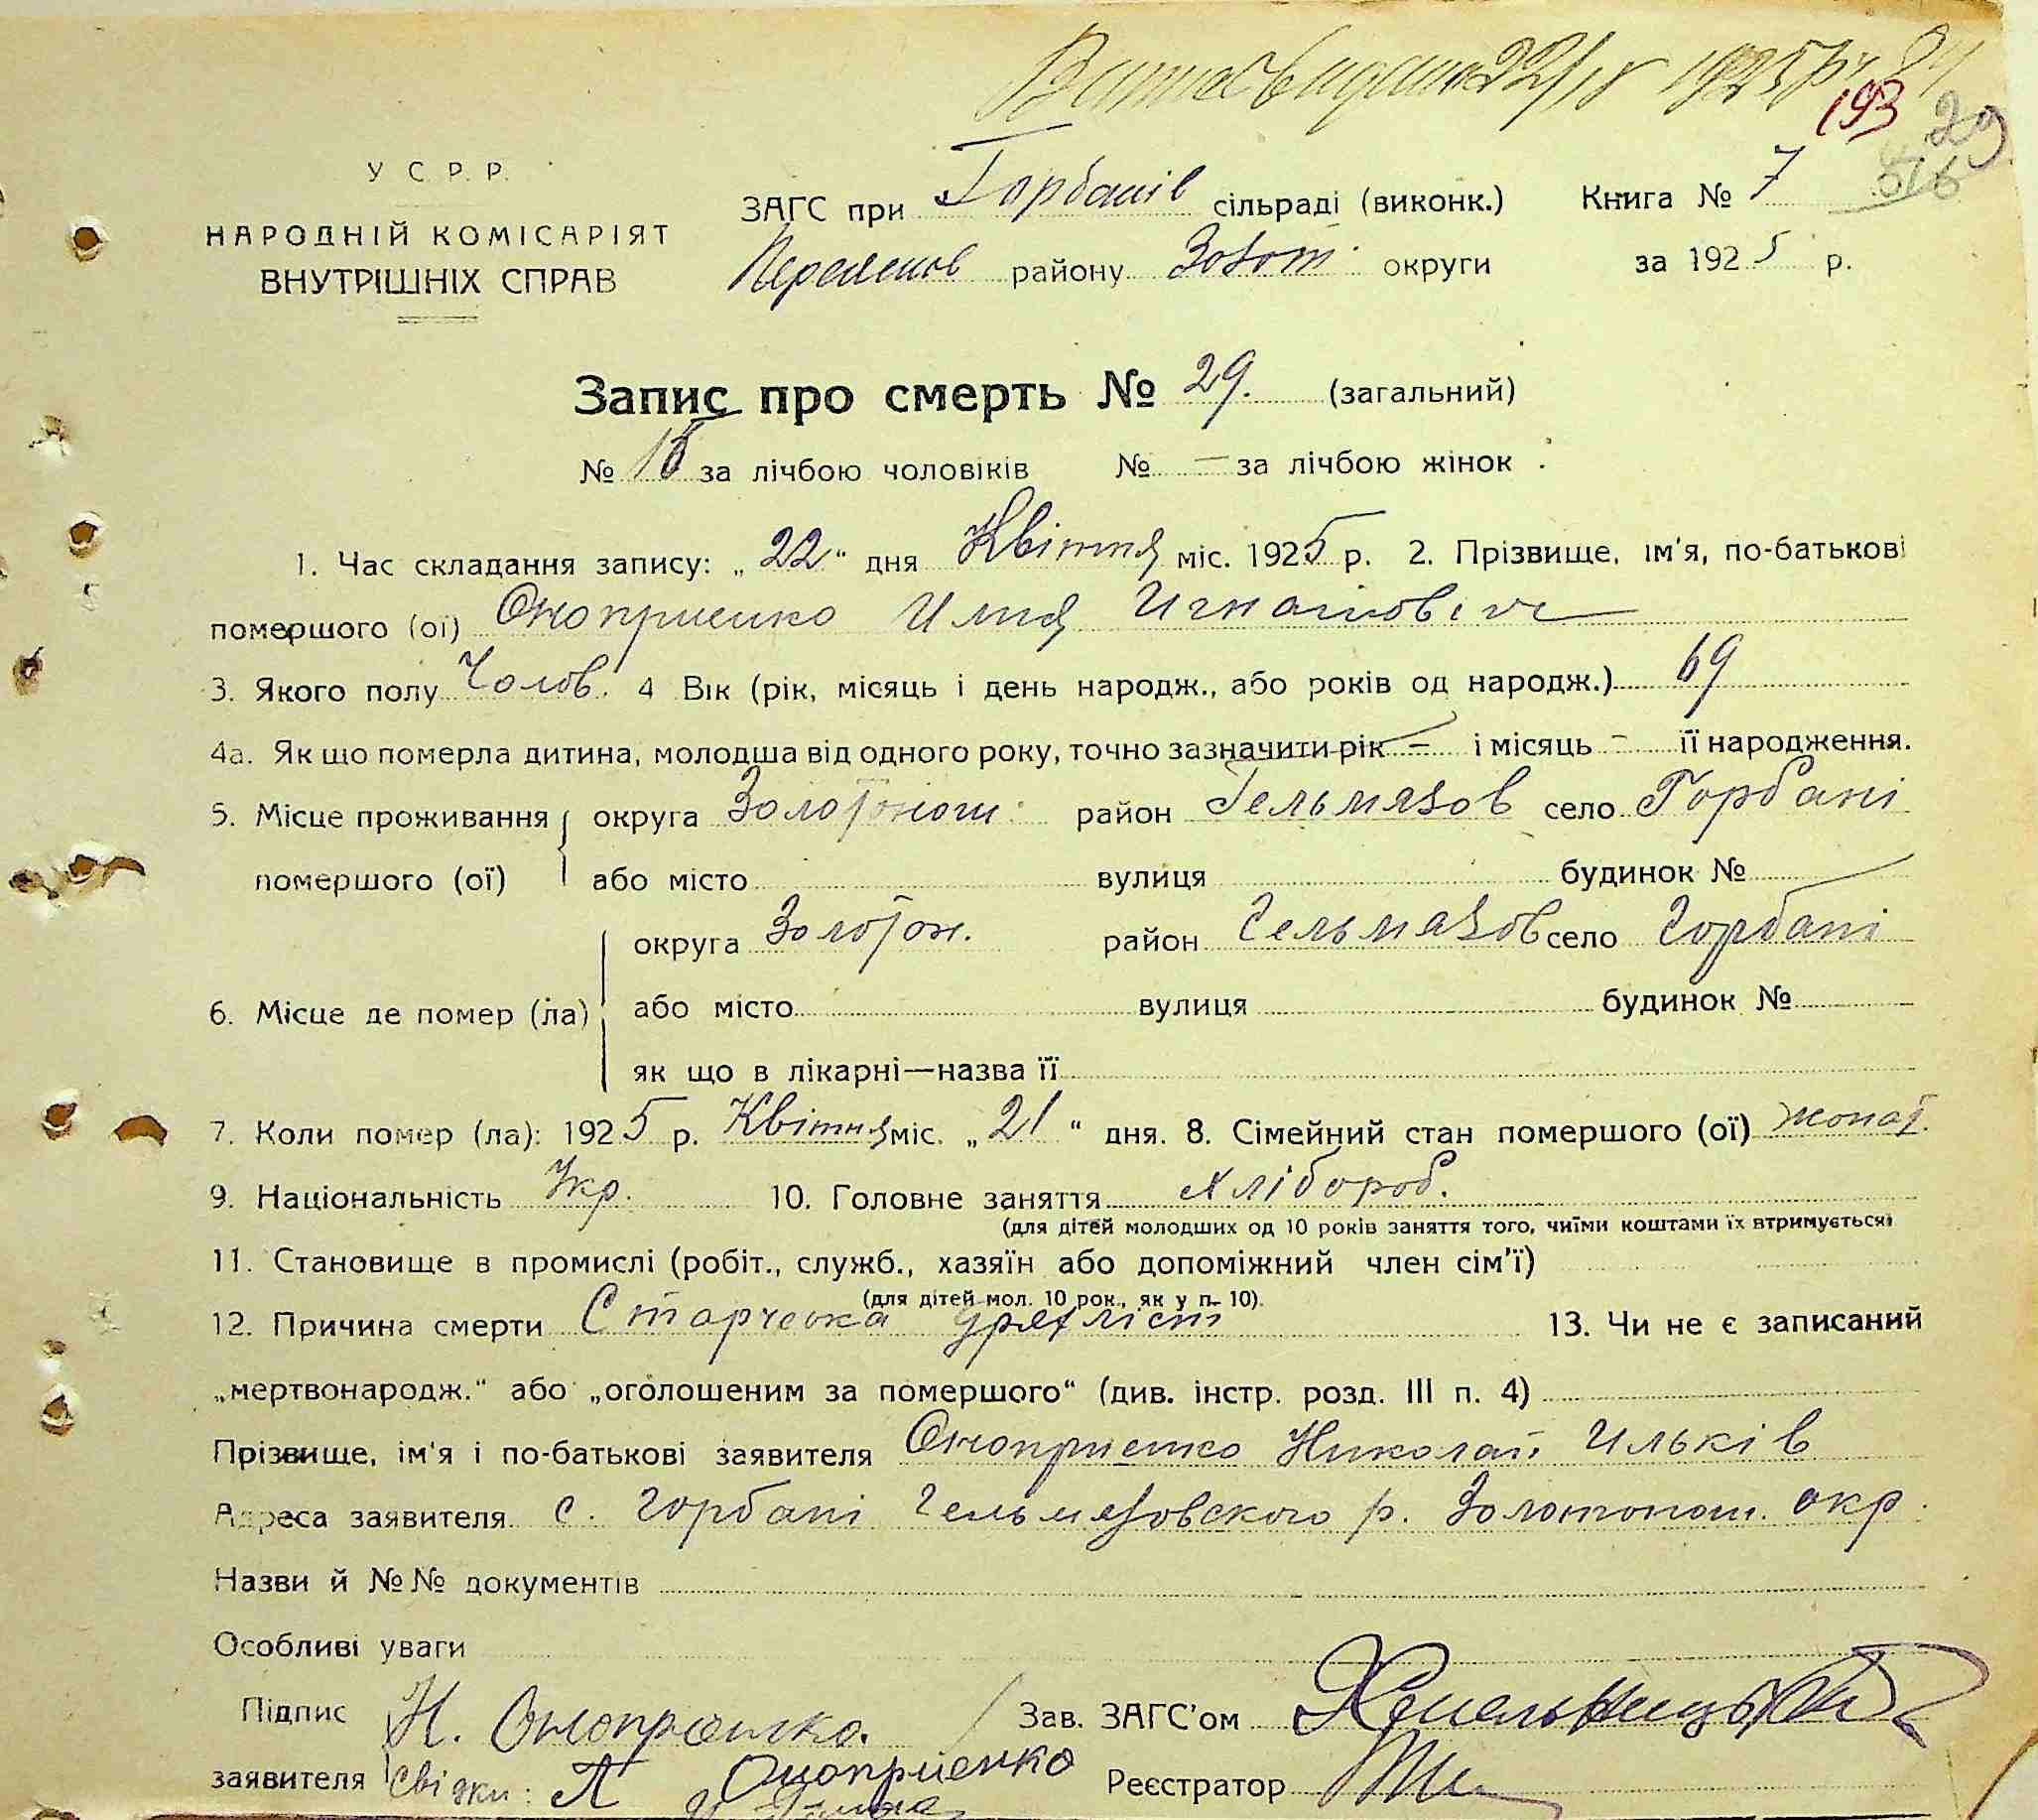 22/IV 1925 р.
193
29
У С. Р. Р.
НАРОДНІЙ КОМІСАРІЯТ
ВНУТРІШНІХ СПРАВ
ЗАГС при Горбанів сільраді (виконк.) Книга № 7
району Золот. округи за 1925 р.
Запис про смерть № 29. (загальний)
№ 15 за лічбою чоловіків № — за лічбою жінок
1. Час складання запису: „22“ дня Квітня міс. 1925 р. 2. Прізвище, ім'я, по-батькові
помершого (ої) Оноприенко Илия Игнатовіч
3. Якого полу Чолов. 4 Вік (рік, місяць і день народж., або років од народж.) 69
4а. Як що померла дитина, молодша від одного року, точно зазначити рік — і місяць - її народження.
5. Місце проживання округа Золотонош. район Гельмязов село Горбані
помершого (ої) або місто вулиця будинок №
округа Золотон. район Гельмязов село Горбані
6. Місце де помер (ла) або місто вулиця будинок №
як що в лікарні—назва її
7. Коли помер (ла): 1925 р. Квітня міс. „21“ дня. 8. Сімейний стан помершого (ої) жонат.
9. Національність Укр. 10. Головне заняття хлібороб.
(для дітей молодших од 10 років заняття того, чиїми коштами їх втримується)
11. Становище в промислі (робіт., служб., хазяїн або допоміжний член сім'ї)
(для дітей мол. 10 рок., як у п. 10).
12. Причина смерти Старческа дряхліст 13. Чи не є записаний
„мертвонародж.“ або „оголошеним за помершого“ (див. інстр. розд. III п. 4)
Прізвище, ім'я і по-батькові заявителя Оноприенко Николай Ильків
Адреса заявителя с. Горбані Гельмязовского р. Золотонош. окр.
Назви й №№ документів
Особливі уваги
Підпис Н. Оноприенко. Зав. ЗАГС'ом Хмельницький
заявителя Свідки: А Оноприенко Реєстратор